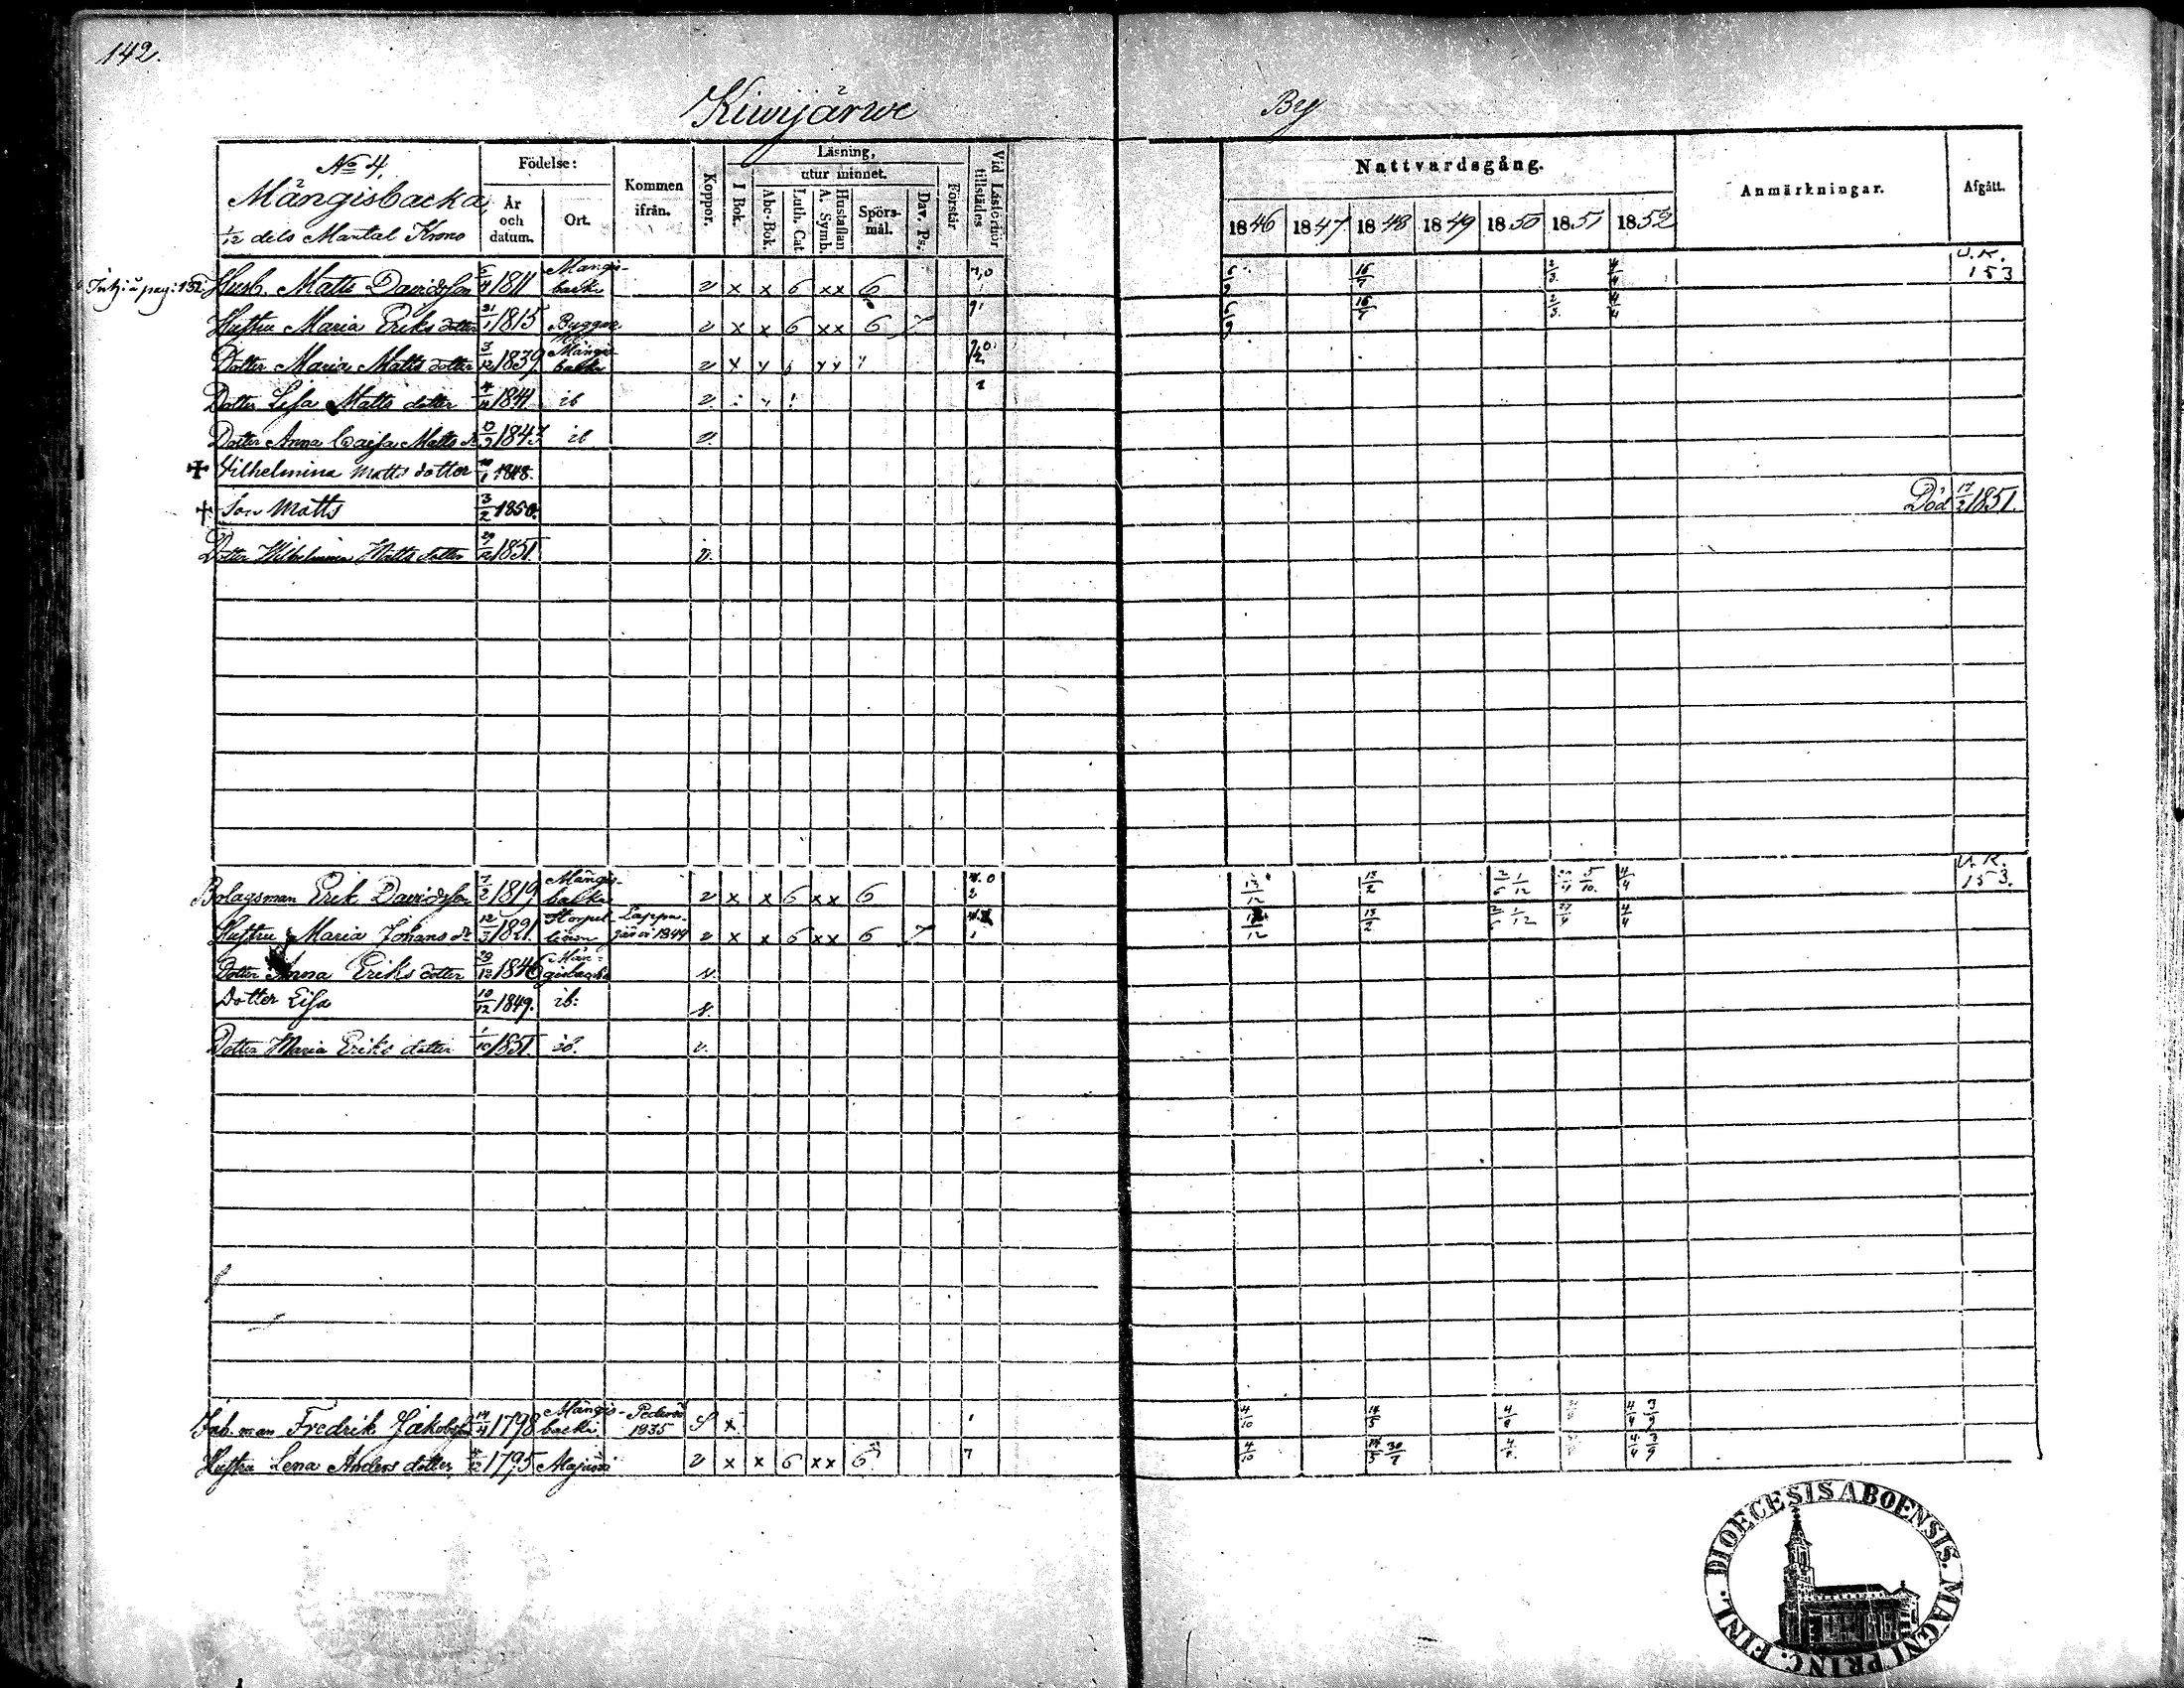 142.
Kiwijärwe By
No 4.
Mångisbacka,
1/12 dels Mantal Krono
Födelse:
År och datum.
Ort.
Kommen ifrån.
Koppor.
Läsning,
I Bok.
utur minnet.
Abc-Bok.
Luth. Cat.
A. Symb.
Hustaflan
Spörs-mål.
Dav. Ps.
Förstår
Vid Läsförhör tillstädes
Nattvardsgång.
1846 1847 1848 1849 1850 1851 1852
Anmärkningar.
Afgått.
Husb. Matts Davidsson 5/4 1811 Mångis-backa v x x 6 x x 6 6/9 16/7 2/3 4/4 U.K. 153
Hustru Maria Eriks dotter 21/1 1815 Byggm v x x 6 x x 6 6/9 16/7 2/3 4/4
Dotter Maria Matts dotter 3/12 1839 Mångisbacka v x
Dotter Lisa Matts dotter 1841 ib v.
Dotter Anna Caisa Matts dr 1843 ib v.
✝ Vilhelmina Matts dotter 1848.
✝ Son Matts 3/2 1850. Död 17/2 1851.
Dotter Wilhelmina Matts dotter 29/12 1851. v.
Bolagsman Erik Davidsson 7/2 1819 Mångis-backa v x x 6 x x 6 13/12 13/2 2/6 1/12 5/10 4/4 U.K. 153.
Hustru Maria Johans dr 12/3 1821 Lappajärvi 1844 v x x 6 x x 6 7 13/2 2/6 1/12 27/4 4/4
Dotter Anna Eriks dotter 29/12 1846 Mångisbacka v.
Dotter Lisa 10/12 1849. ib: v.
Dotter Maria Eriks dotter 1/10 1851. ib. v.
Inh.man Fredrik Jakobsson 14/4 1798 Mångis-backa Pedersö 1835 S x 4/10 14/5 4/4 3/9
Hustru Lena Anders dotter 1795 v x x 6 x x 6 7 4/10 14/5 30/7 4/4 3/9
DIOECESIS ABOENSIS. MAGNI PRINC. FINL.